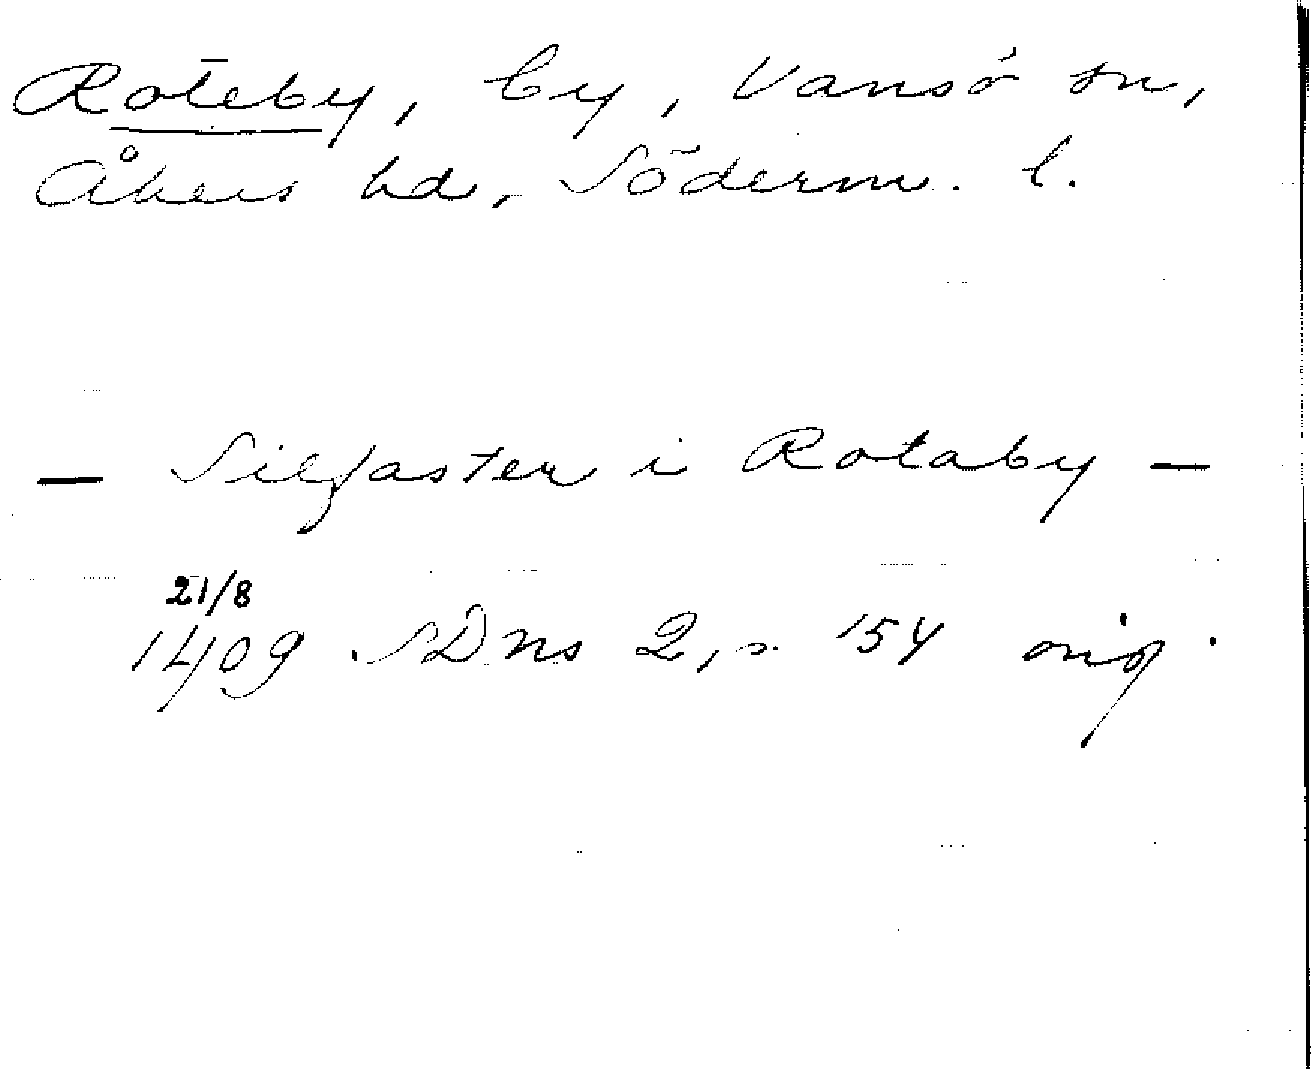 Roteby, by, Vansö sn,
Åkers hd, Söderm. l.
— Silfaster i Rotaby —
21/8
1409 SDns 2, s. 154 orig.